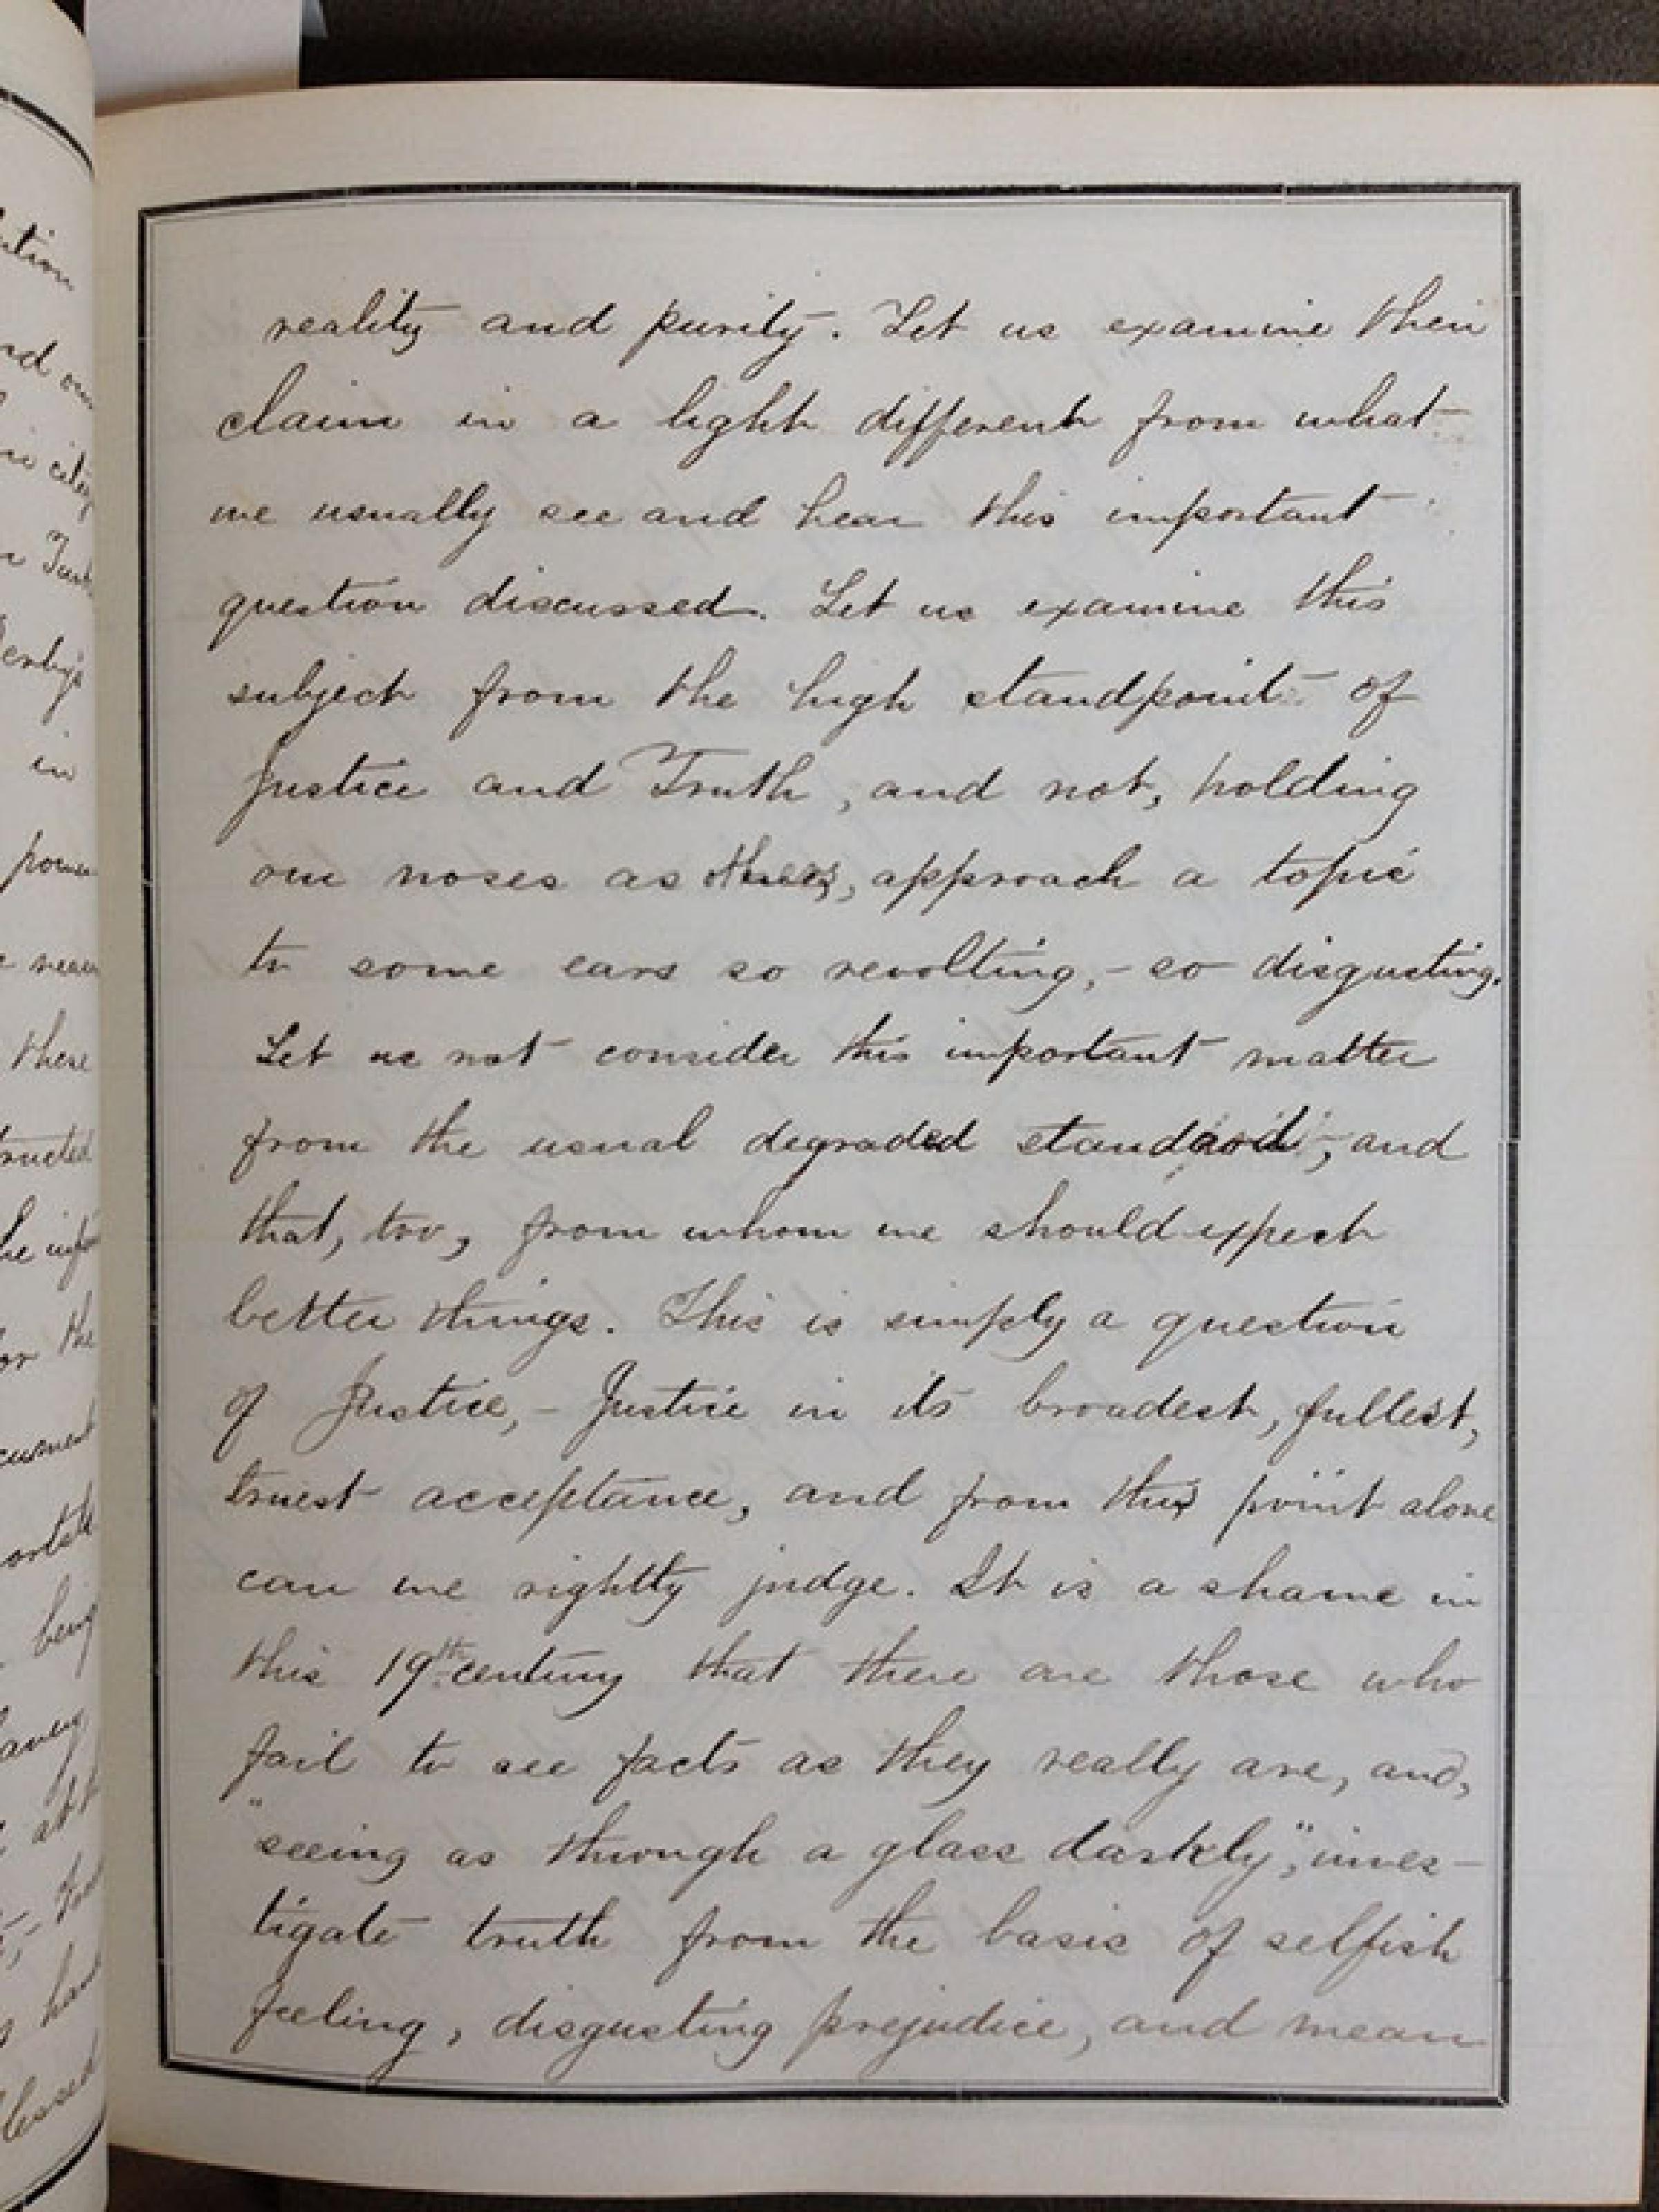 reality and purity. Let us examine their
claim in a light different from what
we usually see and hear this important
question discussed. Let us examine this
subject from the high standpoint of
Justice and Truth, and not, holding
our noses as others, approach a topic
to some ears so revolting, - so disgusting.
Let us not consider this important matter
from the usual degraded standard, - and
that, too, from whom we should expect
better things. This is simply a question
of Justice, - Justice in its broadest, fullest,
truest acceptance, and from this point alone
can we rightly judge. It is a shame in
this 19th century that there are those who
fail to see facts as they really are, and,
"seeing as through a glass darkly", inves-
tigate truth from the basis of selfish
feeling, disgusting prejudice, and mean
in
these
being